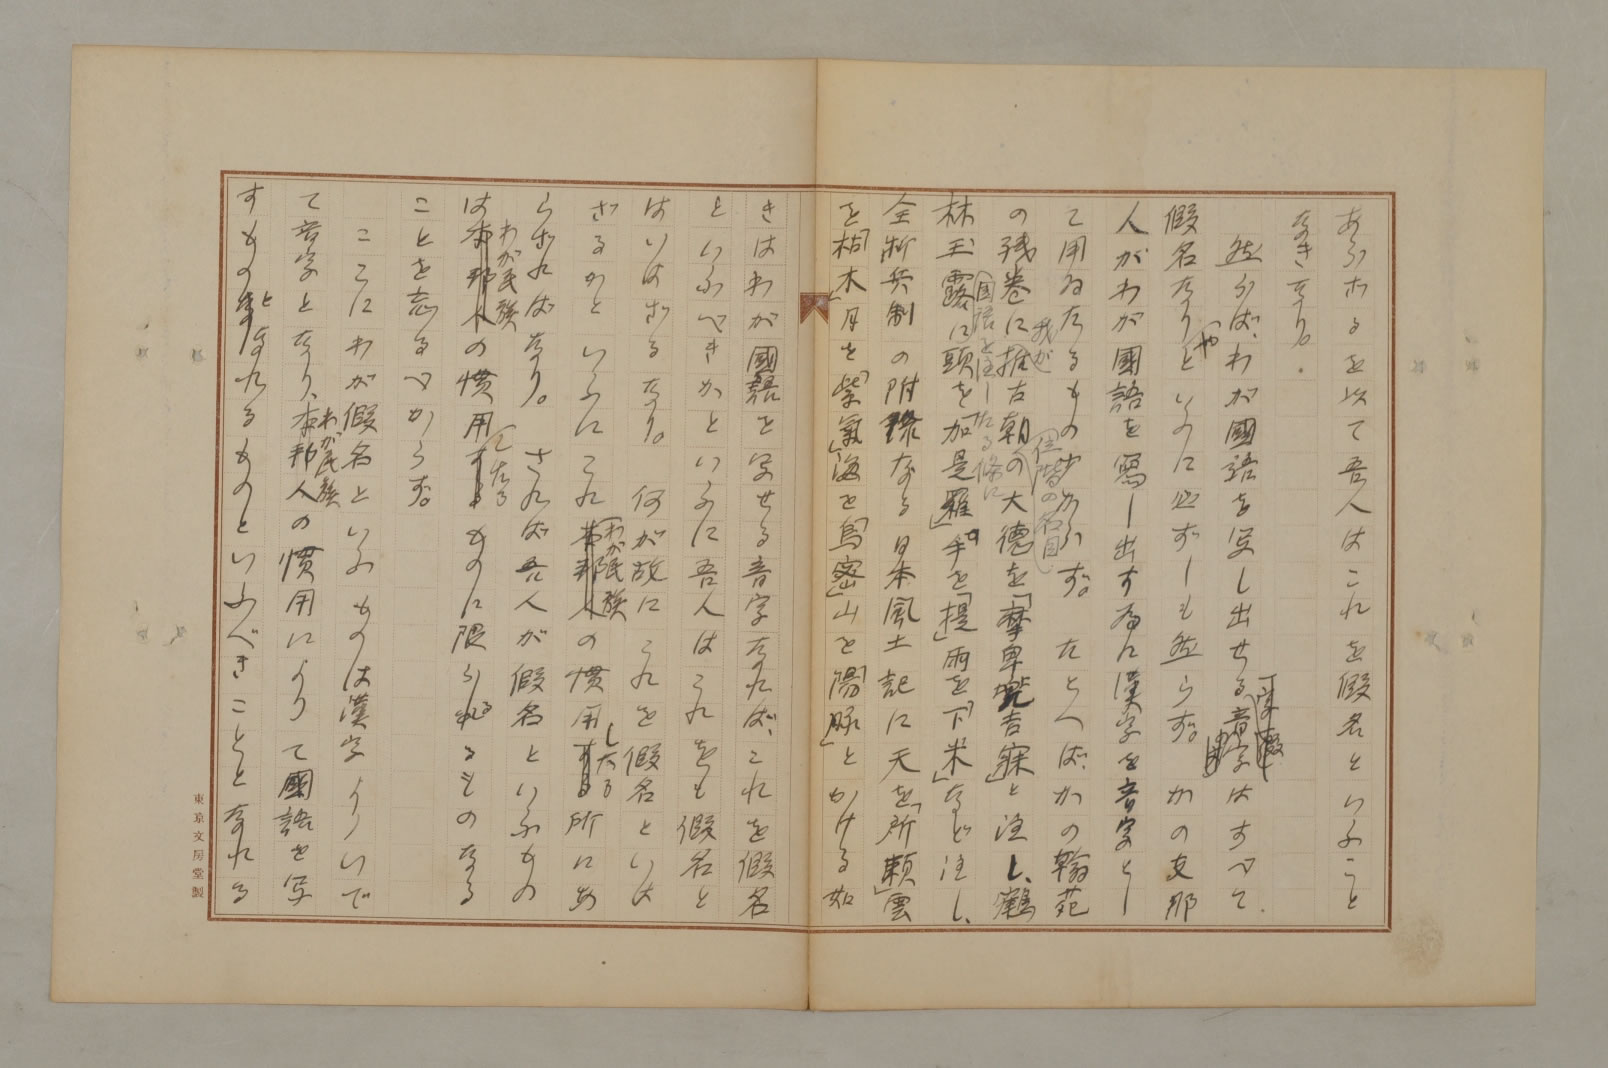 あらざるを以て吾人はこれを假名といふこと
なきなり。
然らば、わが國語を写し出せる音字はすべて
假名なりやといふに必ずしも然らず。かの支那
人がわが國語を寫し出す為に漢字を音字とし
て用ゐたるもの少からず。たとへば、かの翰苑
の残巻に我が推古朝の位階の名目大德を「摩卑兜吉寐」と注し、鶴
林玉露に國語を注したる條に頭を「加是羅」手を「提」雨を「下米」など注し、
全浙兵制の附録なる日本風土記に天を「所頼」雲
を「枯木」月を「紫氣」海を「烏密」山を「陽脉」とかける如
きはわが國語を写せる音字なれば、これを假名
といふべきかといふに吾人はこれをも假名と
はいはざるなり。何が故にこれを假名といは
ざるかといふにこれわが民族の慣用したる所にあ
らざればなり。されば吾人が假名といふもの
はわが民族の慣用したるものに限らるるものなる
ことを忘るべからず。
ここにわが假名といふものは漢字よりいで
て音字となり、わが民族本邦人の慣用によりて國語を写
すものとなれるものといふべきことなれる
東京文房堂製